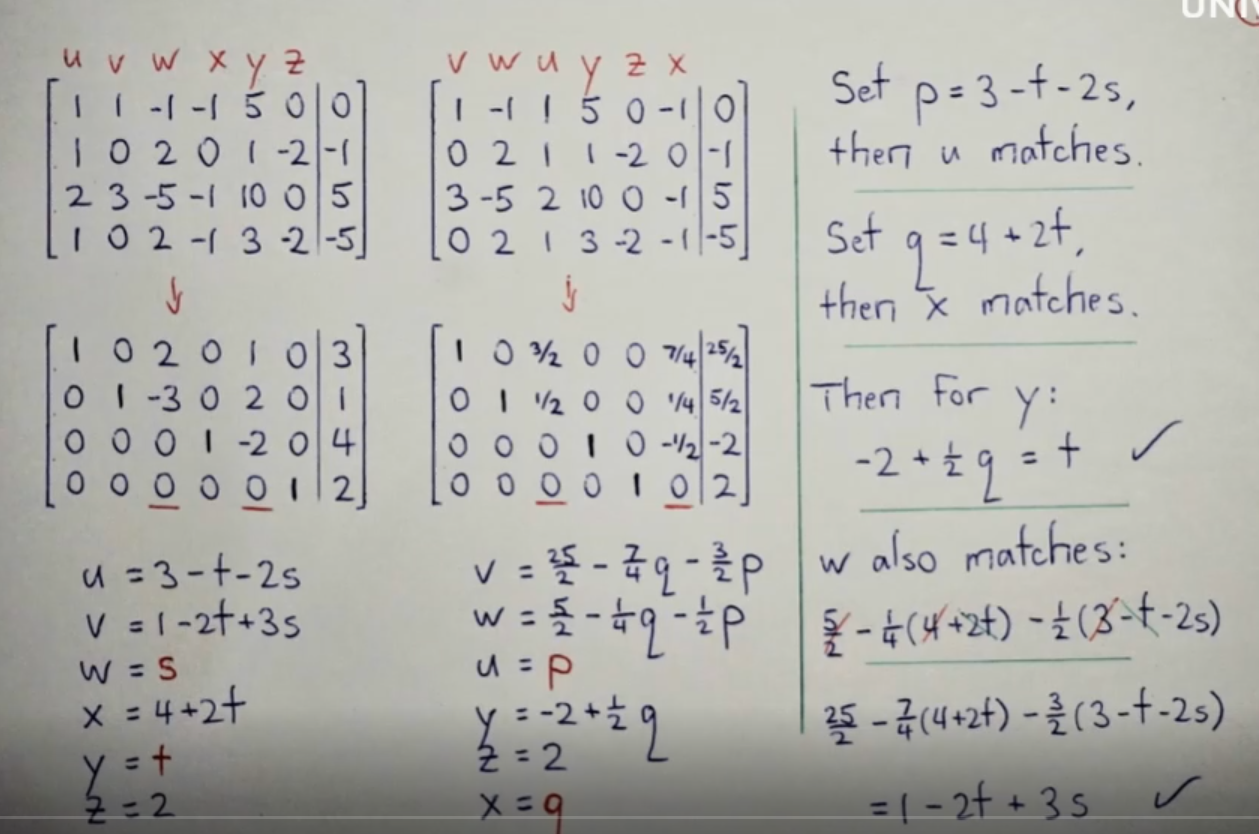 UNIV
u v w x y z
1 1 -1 -1 5 0 | 0
1 0 2 0 1 -2 | -1
2 3 -5 -1 10 0 | 5
1 0 2 -1 3 -2 | -5
↓
1 0 2 0 1 0 | 3
0 1 -3 0 2 0 | 1
0 0 0 1 -2 0 | 4
0 0 0 0 0 1 | 2
u = 3 - t - 2s
v = 1 - 2t + 3s
w = s
x = 4 + 2t
y = t
z = 2
v w u y z x
1 -1 1 5 0 -1 | 0
0 2 1 1 -2 0 | -1
3 -5 2 10 0 -1 | 5
0 2 1 3 -2 -1 | -5
↓
1 0 3/2 0 0 7/4 | 25/2
0 1 1/2 0 0 1/4 | 5/2
0 0 0 1 0 -1/2 | -2
0 0 0 0 1 0 | 2
v = 25/2 - 7/4 q - 3/2 p
w = 5/2 - 1/4 q - 1/2 p
u = p
y = -2 + 1/2 q
z = 2
x = q
Set p = 3 - t - 2s,
then u matches.
Set q = 4 + 2t,
then x matches.
Then for y:
-2 + 1/2 q = t ✓
w also matches:
5/2 - 1/4 (4 + 2t) - 1/2 (3 - t - 2s)
25/2 - 7/4 (4 + 2t) - 3/2 (3 - t - 2s)
= 1 - 2t + 3s ✓